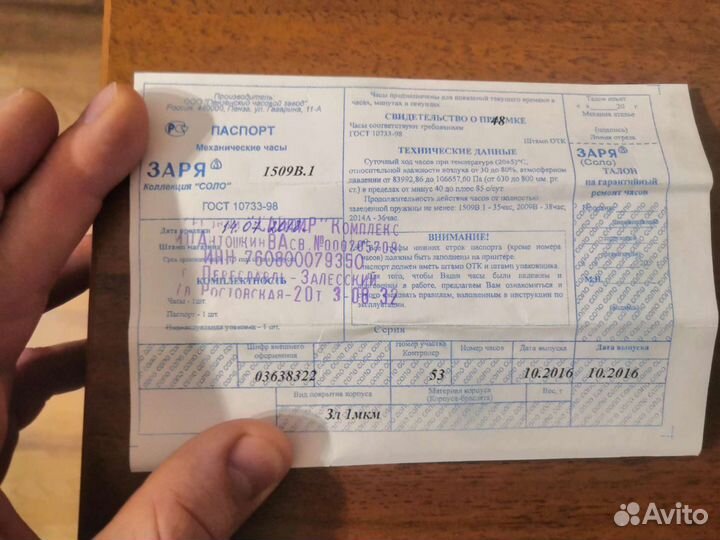 Производитель:
ООО "Пензенский часовой завод"
Россия, 440000, Пенза, ул. Гагарина, 11-А
РСТ ПАСПОРТ
Механические часы
ЗАРЯ 1509В.1
Коллекция "СОЛО"
ГОСТ 10733-98
Дата продажи 14.07.
Штамп магазина
КОМПЛЕКС
ИП АНТОШКИН ВА СВ. №
ИНН 760800079350
Г. ПЕРЕСЛАВЛЬ-ЗАЛЕССКИЙ
УЛ РОСТОВСКАЯ-20Т 3-08-32
КОМПЛЕКТНОСТЬ
Часы - 1 шт.
Паспорт - 1 шт.
Индивидуальная упаковка - 1 шт.
Часы предназначены для показаний текущего времени в
часах, минутах и секундах
СВИДЕТЕЛЬСТВО О ПРИЕМКЕ
48
Часы соответствуют требованиям
ГОСТ 10733-98
Штамп ОТК
ТЕХНИЧЕСКИЕ ДАННЫЕ
Суточный ход часов при температуре (20±5)°С,
относительной влажности воздуха от 30 до 80%, атмосферном
давлении от 83992,86 до 106657,60 Па (от 630 до 800 мм. рт.
ст.) в пределах от минус 40 до плюс 85 с/сут
Продолжительность действия часов от полностью
заведенной пружины не менее: 1509В.1 - 35час, 2009В - 38час,
2014А - 36час.
ВНИМАНИЕ!
графы нижних строк паспорта (кроме номера
часов) должны быть заполнены на принтере.
Паспорт должен иметь штамп ОТК и штамп упаковщика.
того, чтобы Ваши часы были надежны и
в работе, предлагаем Вам ознакомиться и
правилам, изложенным в инструкции по
эксплуатации.
Серия
Талон изъят
20 г
Механик ателье
(подпись)
Линия отреза
ЗАРЯ
(Соло)
ТАЛОН
на гарантийный
ремонт часов
М.П.
Шифр внешнего оформления
Номер участка
Контролер
Номер часов
Дата выпуска
Дата выпуска
03638322
53
10.2016
10.2016
Вид покрытия корпуса
Материал корпуса
(Корпуса-браслета)
Вес, г
Зл 1мкм
Avito